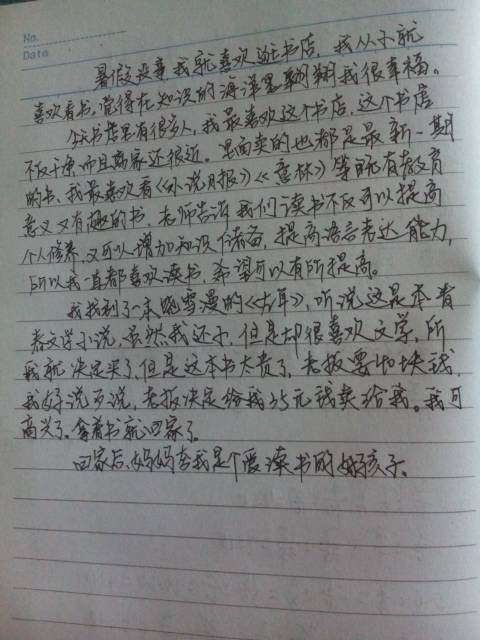 No.
Date
暑假没事我就喜欢逛书店。我从小就
喜欢看书,觉得在知识的海洋里翱翔我很幸福。
众书店里有很多人,我最喜欢这个书店,这个书店
不仅干净而且离家还很近。里面卖的也都是最新一期
的书。我最喜欢看《小说月报》《意林》等既有教育
意义又有趣的书。老师告诉我们读书不仅可以提高
个人修养,又可以增加知识储备,提高语言表达能力,
所以我一直都喜欢读书,希望可以有所提高。
我找到了一本饶雪漫的《大年》,听说这是本青
春文学小说,虽然我还小,但是却很喜欢文学,所
我就决定买了,但是这本书太贵了,老板要40块钱,
我好说歹说,老板决定给我35元钱卖给我。我可
高兴了。拿着书就回家了。
回家后,妈妈夸我是个爱读书的好孩子。